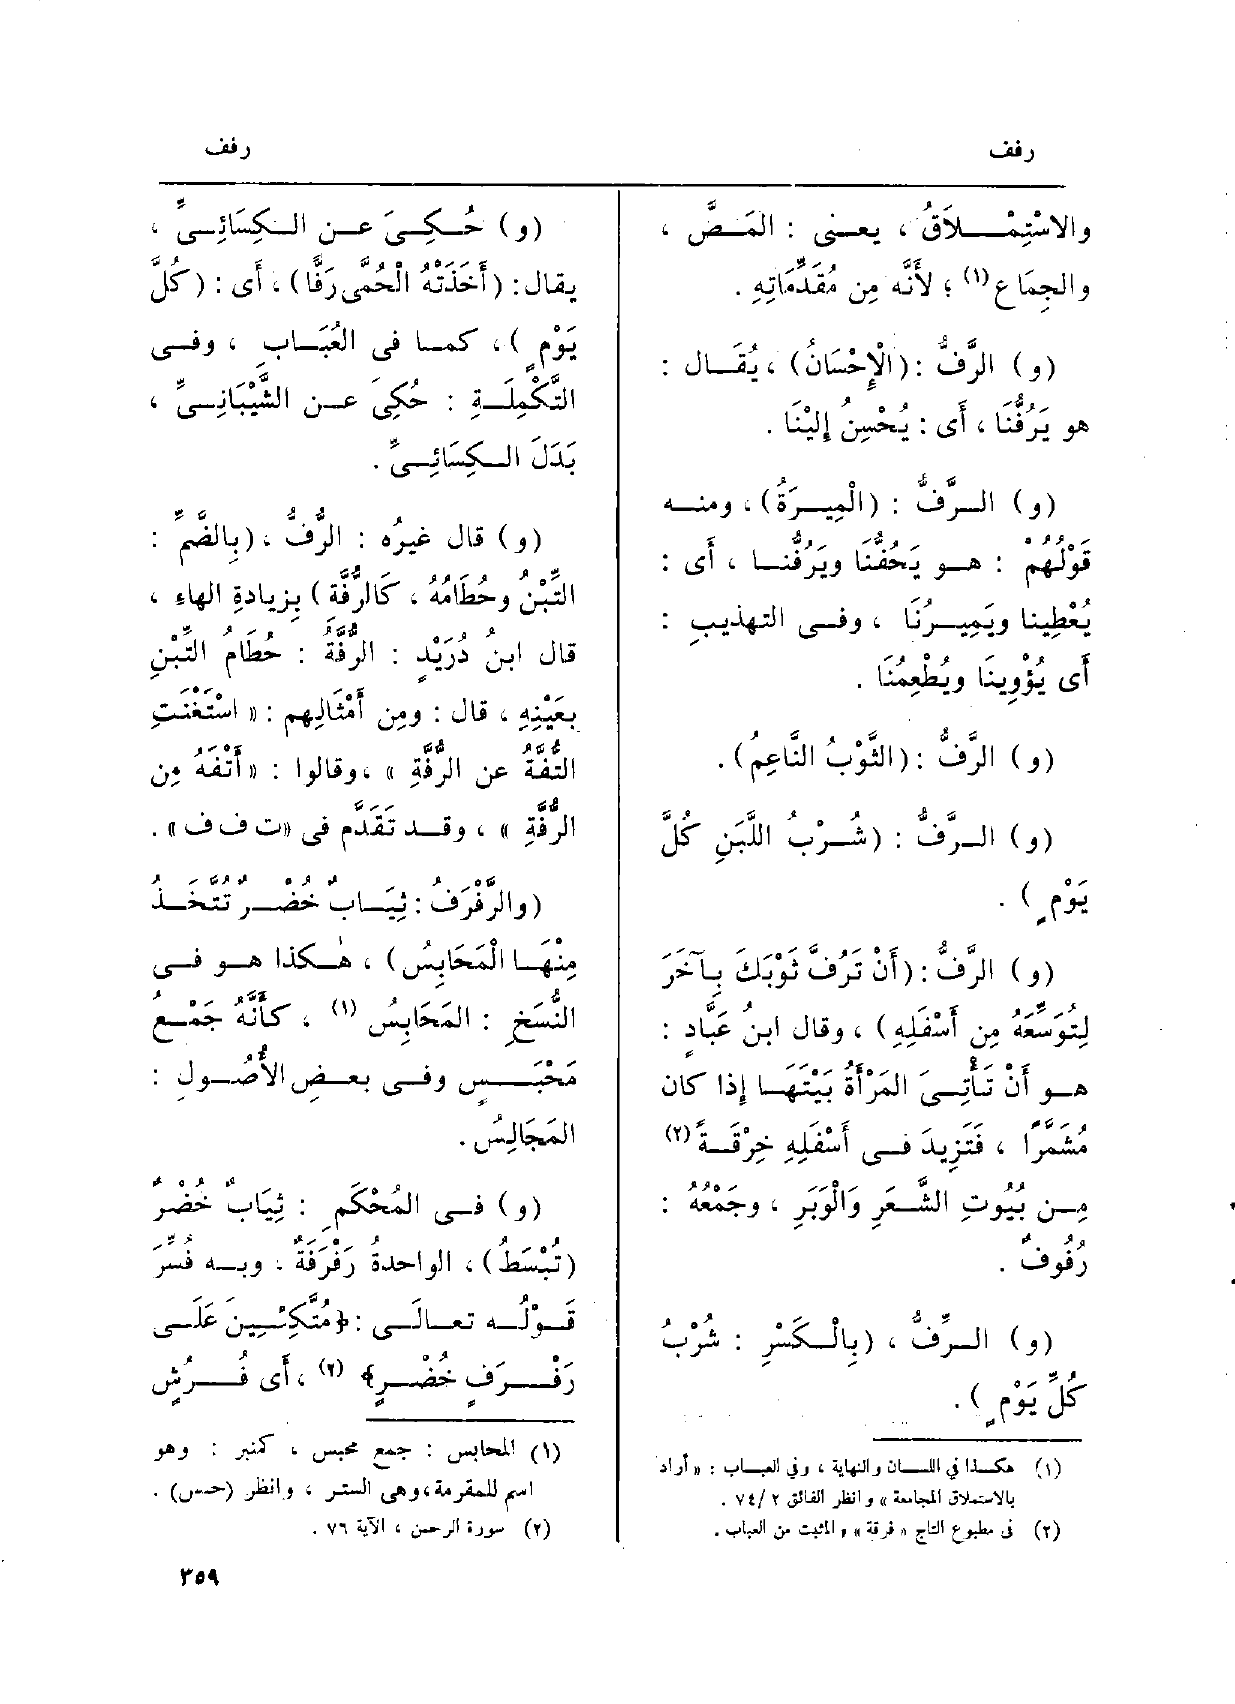 رفف
رفف
والاسْتِمْلَاقُ ، يعنى : المَصَّ ،
والجِمَاع(١) ؛ لأَنَّه مِن مُقَدِّمَاتِهِ .
(و) الرَّفُّ : (الْإِحْسَانُ) ، يُقَال :
هو يَرُفُّنَا ، أى : يُحْسِنُ إِليْنَا .
(و) الرَّفُّ : (الْمِيرَةُ) ، ومنه
قَوْلُهُمْ : هو يَحُفُّنَا ويَرُفُّنا ، أى :
يُعْطِينا ويَمِيرُنَا ، وفى التهذيبِ :
أى يُؤْوِينَا ويُطْعِمُنَا .
(و) الرَّفُّ : (الثَّوْبُ النَّاعِمُ) .
(و) الرَّفُّ : (شُرْبُ اللَّبَنِ كُلَّ
يَوْمٍ ) .
(و) الرَّفُّ : (أَنْ تَرُفَّ ثَوْبَكَ بِآخَرَ
لِتُوَسِّعَهُ مِن أَسْفَلِهِ) ، وقال ابنُ عَبَّادٍ :
هو أَنْ تَأْتِىَ المَرْأَةُ بَيْتَهَا إِذا كان
مُشَمَّرًا ، فَتَزِيدَ فى أَسْفَلِهِ خِرْقَةً(٢)
مِن بُيُوتِ الشَّعَرِ وَالْوَبَرِ ، وجَمْعُهُ :
رُفُوفٌ .
(و) الرِّفُّ ، (بِالْكَسْرِ : شُرْبُ
كُلِّ يَوْمٍ ) .
(١) هكذا فى اللسان والنهاية ، وفى العباب : « أراد
بالاستملاق المجامعة » وانظر الفائق ٢ /٧٤ .
(٢) فى مطبوع التاج « فرقة » والمثبت من العباب .
(و) حُكِىَ عن الكِسَائِىِّ ،
يقال : (أَخَذَتْهُ الْحُمَّى رَفًّا) ، أى : (كُلَّ
يَوْمٍ ) ، كما فى العُبَابِ ، وفى
التَّكْمِلَةِ : حُكِىَ عن الشَّيْبَانِىِّ ،
بَدَلَ الكِسَائِىِّ .
(و) قال غيرُه : الرُّفُّ ، (بِالضَّمِّ :
التِّبْنُ وحُطَامُهُ ، كَالرُّفَّةِ ) بزيادةِ الهاءِ ،
قال ابنُ دُرَيْدٍ : الرُّفَّةُ : حُطَامُ التِّبْنِ
بعَيْنِهِ ، قال : ومِن أَمْثَالِهم : « اسْتَغْنَتِ
التُّفَّةُ عن الرُّفَّةِ » ، وقالوا : « أَتْفَهُ مِن
الرُّفَّةِ » ، وقد تَقَدَّم فى «ت ف ف» .
(والرَّفْرَفُ : ثِيَابٌ خُضْرٌ تُتَّخَذُ
مِنْهَا الْمَحَابِسُ) ، هٰكذا هو فى
النُّسَخِ : المَحَابِسُ (١) ، كأَنَّهُ جَمْعُ
مَحْبَسٍ وفى بعضِ الأُصُولِ :
المَجَالِسُ .
(و) فى المُحْكَمِ : ثِيَابٌ خُضْرٌ
(تُبْسَطُ) ، الواحدةُ رَفْرَفَةٌ . وبه فُسِّرَ
قَوْلُه تعالَى : ﴿مُتَّكِئِينَ عَلَى
رَفْرَفٍ خُضْرٍ﴾ (٢) ، أى فُرُشٍ
(١) المحابس : جمع محبس ، كمنبر : وهو
اسم للمقرمة ، وهى الستر ، وانظر (حبس) .
(٢) سورة الرحمن ، الآية ٧٦ .
٣٥٩